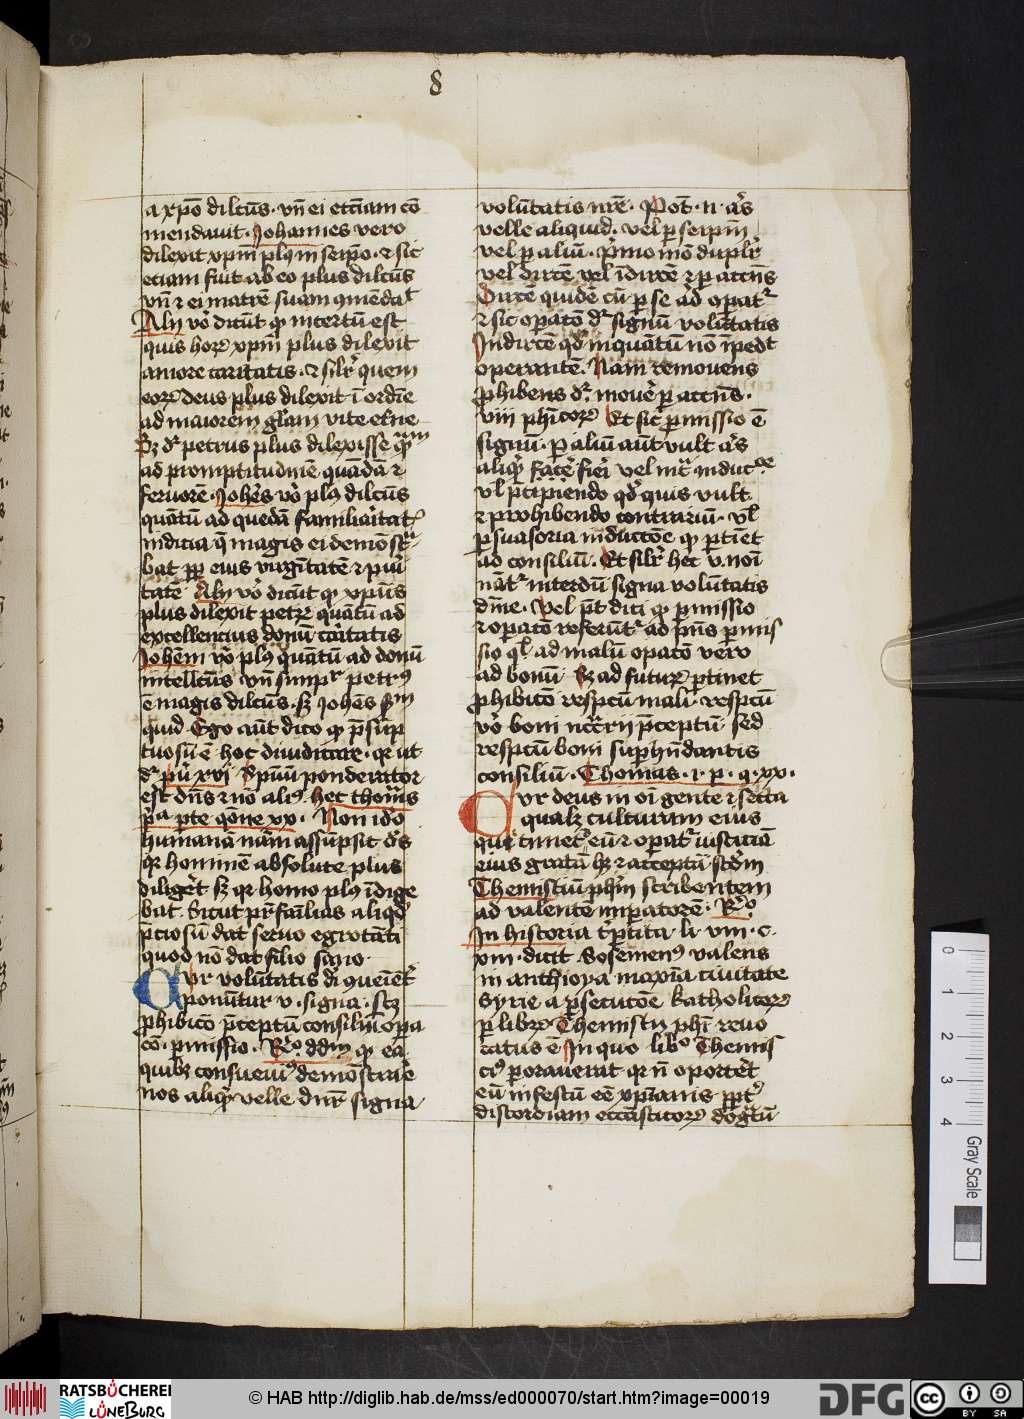 8
a xpō dilcūs · vn̄ ei etciam cō
mendauit · Johannes vero
dilexit xpm̄ plus in seipo · ⁊ sic
etiam fuit ab eo plus dilcūs
vn̄ ⁊ ei matrē suam cōmēdat
Alij vo dicūt qp incertū est
quis horꝝ xpm̄ plus dilexit
amore caritatis · ⁊ silr quem
eorꝝ deus plus dilexit ī ordīe
ad maiorem glam vite etne
Sꝫ dr petrus plus dilexisse
ad promptitudinē quādā ⁊
feruorē · Johēs vo plus dilcūs
quātū ad quedā familiaritat
indicia q̄ magis ei demōstra
bat ꝓp eius virgītatē ⁊ puri
tatē Alij vo dicūt qp xpūs
plus dilexit petrꝝ quātū ad
excellencius donū caritatis
Johēm vo plus quātū ad donū
intellcūs · vn̄ simplr petrus
ē magis dilcūs · sꝫ Johēs
quid · Ego aut dico qp p̄sūp
tuosū ē hoc diiudicare · qr ut
dr pu xvi Spūū ponderator
est dns ⁊ nō alius · hec thoms
pa parte qōne xx · Non ideo
humanā nām assūpsit ds
qr hominē absolute plus
diligeret sꝫ qr homo plus īdige
bat · Sicut pr̄familias aliqd
p̄ciosū dat seruo egrotāti
quod nō dat filio sano ·
Cur volūtatis di queiēt
ponūtur v · signa · scꝫ
prohibicō p̄ceptū consiliū opa
cō · pmissio · Ro ddm qp ea
quibꝫ consueuimus demōstrare
nos aliqd velle · dnr signa ·
volūtatis nrē · Pot · n · aꝭs
velle aliquid · vel p seipm̄
vel p aliū · primo mo duplr
vel dircē vel īdircē ⁊ p accns
Dircē quidē cū p se ad opat
⁊ sic opatō dr signū volūtatis
Indircē qd inquātū nō īpedt
operantē · Nam remouens
prohibens dr mouere p accns ·
viii phicorꝝ Et sic pmissio ē
signū · p aliū aut vult aꝭs
aliqd facere fieri vel induc
vl p̄cipiendo qd quis vult
⁊ prohibendo contrariū · vl
psuasoria inductōe qp ptiet
ad consiliū · Et silr hec v · noīa
nāt interdū signa volūtatis
diuīe · vel pt dici qp pmissio
⁊ opatō referūtr ad pns pmis
sio ql ad malū opatō vero
ad bonū · Sꝫ ad futurꝝ ptinet
prohibicō respcū mali · respcū
vo boni nccrii p̄ceptū · sed
respcū boni suphūdantis
consiliū · Thomas · i · p · q · xx ·
Cur deus in oi gente ⁊ secta
qualꝫ culturam eius
qui timet eū ⁊ opat iusticiā
eius gratū hꝫ ⁊ acceptū · scdm
Themistiū phm scribentem
ad valentē imperatorē · Ro
In historia tripertita li · viii · c ·
xiii · dicit Sosemenus valens
in anthioya maxīa ciuitate
Syrie a psecutōe katholicorꝝ
p librꝝ Themistii phi reuo
catus ē In quo libro Themis
cius porauerat qr n oporteret
eū infestū eē xpianis ꝓpt
discordiam ecctasticorꝝ dogtū
0
1
2
3
4
Gray Scale
RATSBÜCHEREI
LÜNEBURG
© HAB http://diglib.hab.de/mss/ed000070/start.htm?image=00019
DFG
cc
BY SA